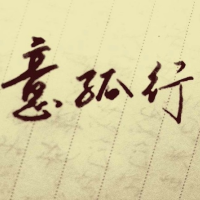 意孤行